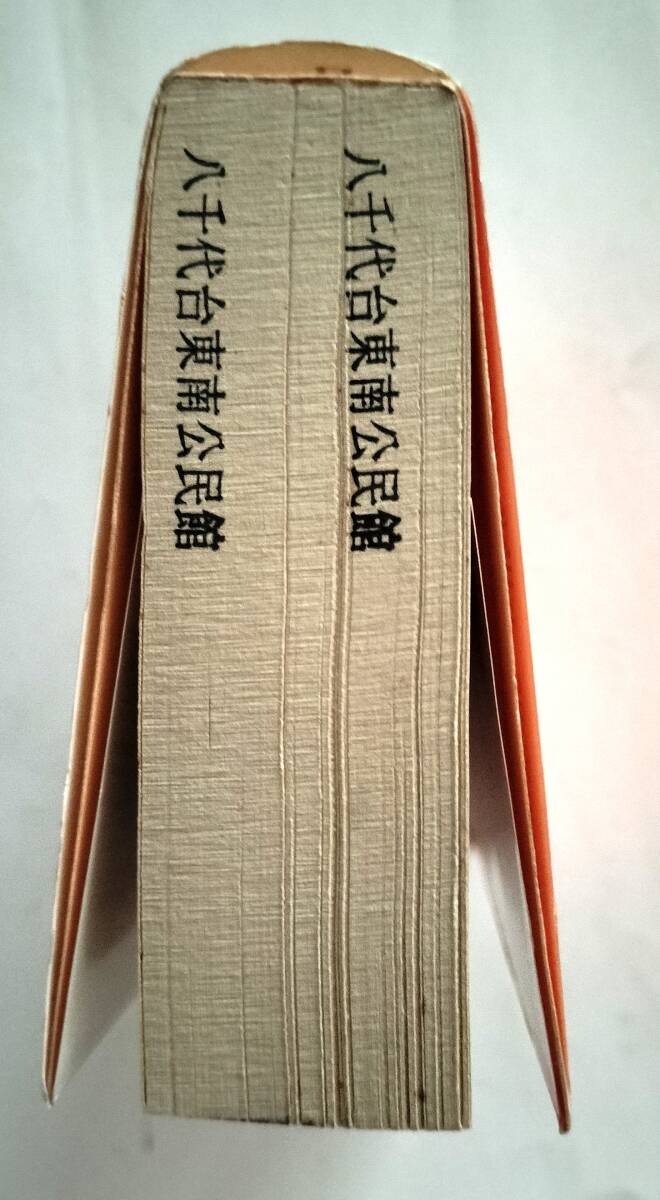 八千代台東南公民館
八千代台東南公民館